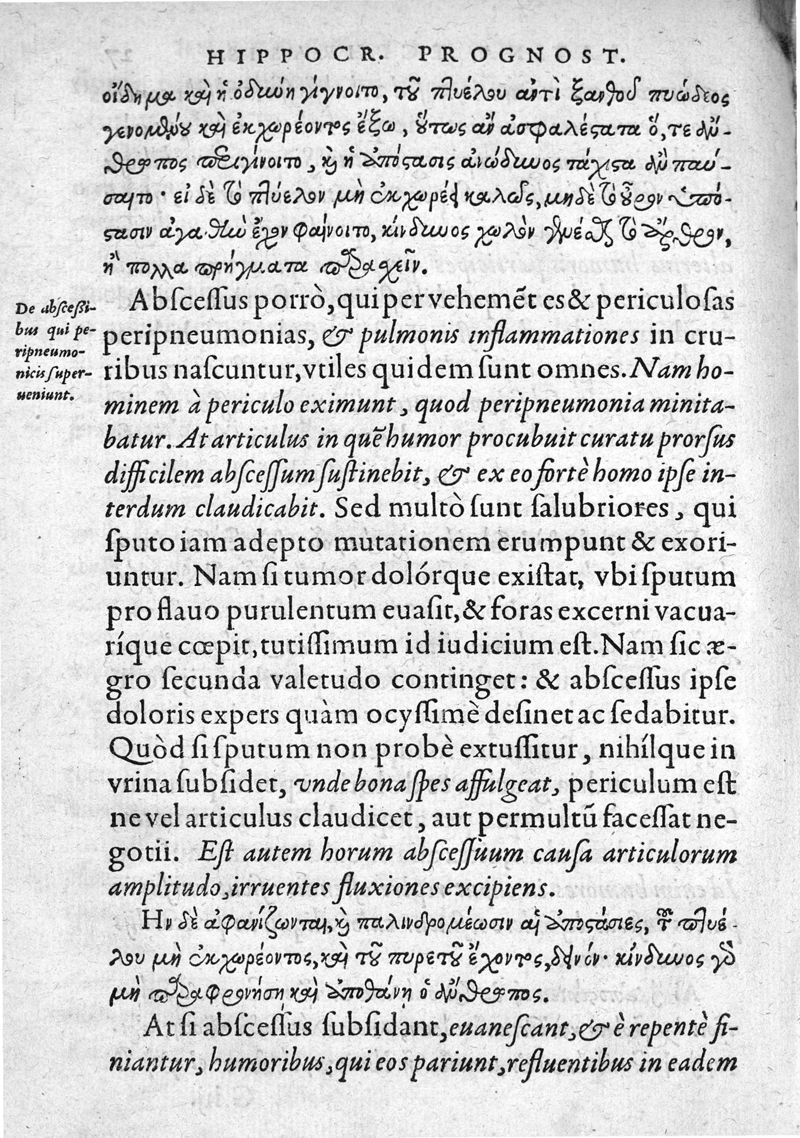 HIPPOCR. PROGNOST.
οἴδημα καὶ ἡ ὀδύνη γίγνοιτο, τοῦ πτυέλου ἀντὶ ξανθοῦ πυώδεος
γενομένου καὶ ἐκχωρέοντος ἔξω, οὕτως ἂν ἀσφαλέστατα ὅ, τε ἄν-
θρωπος περιγίνοιτο, καὶ ἡ ἀπόστασις ἀνώδυνος τάχιστα ἂν παύ-
σαιτο· εἰ δὲ τὸ πτύελον μὴ ἐκχωρέῃ καλῶς, μηδὲ τὸ οὖρον ὑπό-
στασιν ἀγαθὴν ἔχον φαίνοιτο, κίνδυνος χωλὸν γενέσθαι τὸ ἄρθρον,
ἢ πολλὰ πρήγματα παρασχεῖν.
De abscessi-
bus qui pe-
ripneumo-
nicis super-
ueniunt.
Abscessus porrò, qui per vehemẽtes & periculosas
peripneumonias, & pulmonis inflammationes in cru-
ribus nascuntur, vtiles quidem sunt omnes. Nam ho-
minem à periculo eximunt, quod peripneumonia minita-
batur. At articulus in quẽ humor procubuit curatu prorsus
difficilem abscessum sustinebit, & ex eo fortè homo ipse in-
terdum claudicabit. Sed multò sunt salubriores, qui
sputo iam adepto mutationem erumpunt & exori-
untur. Nam si tumor dolórque existat, vbi sputum
pro flauo purulentum euasit, & foras excerni vacua-
ríque cœpit, tutissimum id iudicium est. Nam sic æ-
gro secunda valetudo continget: & abscessus ipse
doloris expers quàm ocyssimè desinet ac sedabitur.
Quòd si sputum non probè extussitur, nihílque in
vrina subsidet, vnde bona spes affulgeat, periculum est
ne vel articulus claudicet, aut permultũ facessat ne-
gotii. Est autem horum abscessuum causa articulorum
amplitudo, irruentes fluxiones excipiens.
Ην δὲ ἀφανίζωνται, καὶ παλινδρομέωσιν αἱ ἀποστάσιες, τοῦ πτυέ-
λου μὴ ἐκχωρέοντος, καὶ τοῦ πυρετοῦ ἔχοντος, δεινόν· κίνδυνος γὰρ
μὴ παραφρονήσῃ καὶ ἀποθάνῃ ὁ ἄνθρωπος.
At si abscessus subsidant, euanescant, & è repentè fi-
niantur, humoribus, qui eos pariunt, refluentibus in eadem